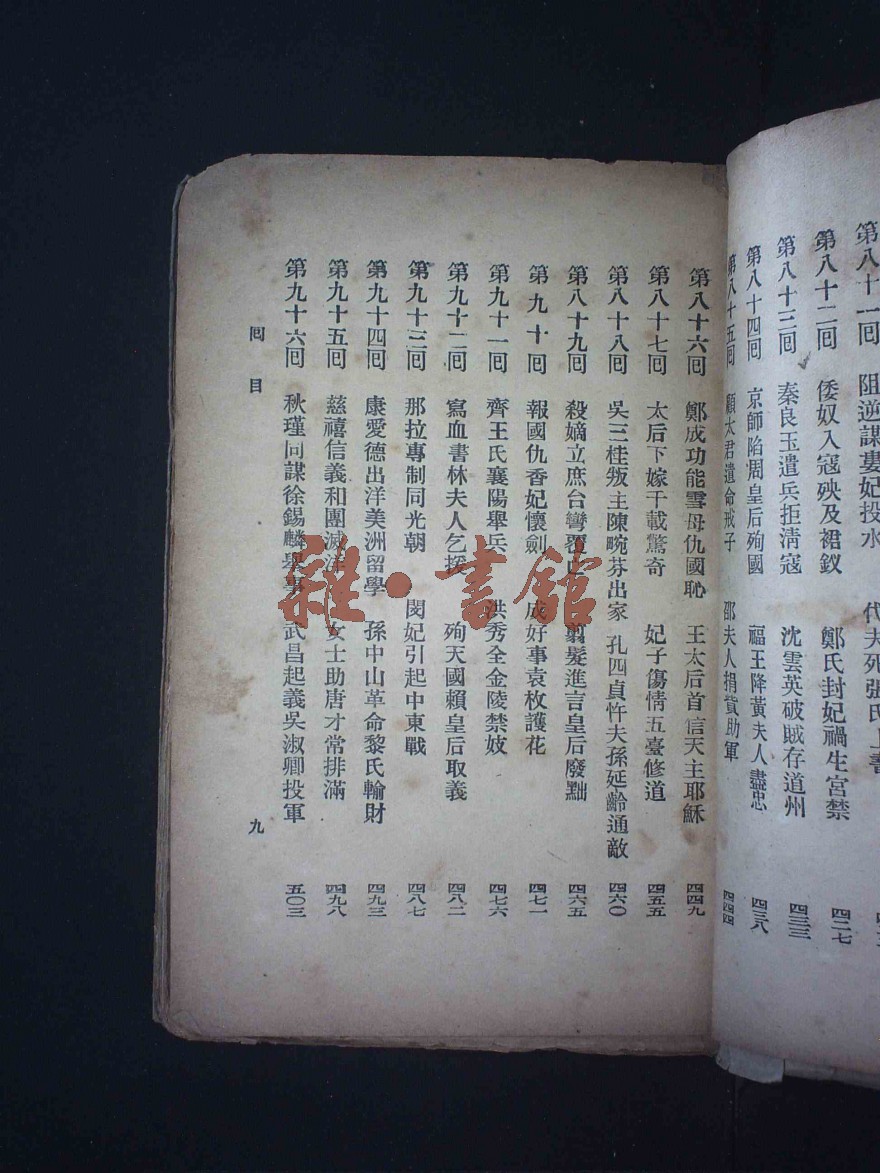 第八十一回　阻逆謀婁妃投水　代夫死張氏上書
第八十二回　倭奴入寇殃及裙釵　鄭氏封妃禍生宮禁　四二七
第八十三回　秦良玉遣兵拒淸寇　沈雲英破賊存道州　四三三
第八十四回　京師陷周皇后殉國　福王降黃夫人盡忠　四三八
第八十五回　顧太君遺命戒子　邵夫人捐貲助軍　四四四
第八十六回　鄭成功能雪母仇國恥　王太后首信天主耶穌　四四九
第八十七回　太后下嫁千載驚奇　妃子傷情五臺修道　四五五
第八十八回　吳三桂叛主陳畹芬出家　孔四貞忤夫孫延齡通敵　四六〇
第八十九回　殺嫡立庶台彎覆亡　翦髮進言皇后廢黜　四六五
第九十回　報國仇香妃懷劍　成好事袁枚護花　四七一
第九十一回　齊王氏襄陽舉兵　洪秀全金陵禁妓　四七六
第九十二回　寫血書林夫人乞援　殉天國賴皇后取義　四八二
第九十三回　那拉專制同光朝　閔妃引起中東戰　四八七
第九十四回　康愛德出洋美洲留學　孫中山革命黎氏輸財　四九三
第九十五回　慈禧信義和團滅洋　女士助唐才常排滿　四九八
第九十六回　秋瑾同謀徐錫麟舉事　武昌起義吳淑卿投軍　五〇三
回目　九
雜·書館